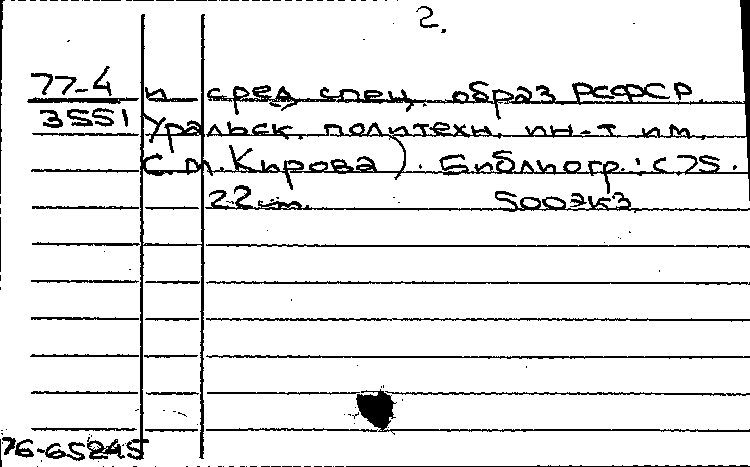 2.
77-4 и сред спец. образ РСФСР.
3551 Уральск. политехн. ин-т им.
С.М. Кирова). Библиогр.: с 75.
22см. 500экз
76-65245